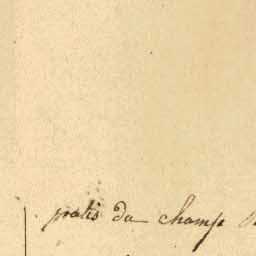 pratis du champ